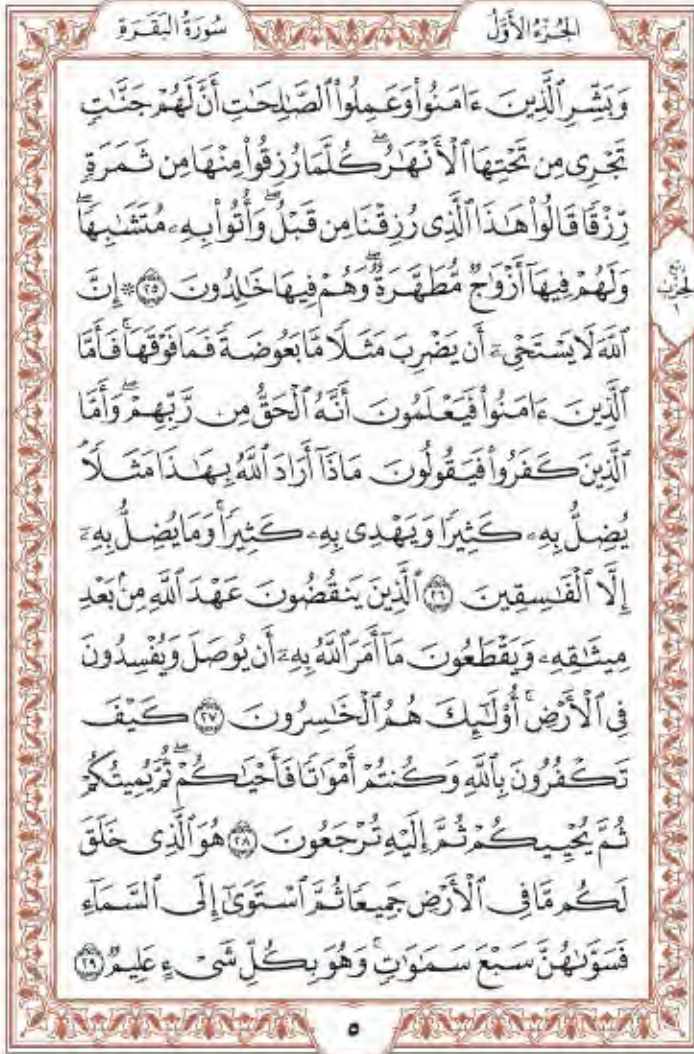 الجُزْءُ الأَوَّلُ
سُورَةُ البَقَرَةِ
وَبَشِّرِ ٱلَّذِينَ ءَامَنُوا۟ وَعَمِلُوا۟ ٱلصَّٰلِحَٰتِ أَنَّ لَهُمْ جَنَّٰتٍ
تَجْرِى مِن تَحْتِهَا ٱلْأَنْهَٰرُ ۖ كُلَّمَا رُزِقُوا۟ مِنْهَا مِن ثَمَرَةٍ
رِّزْقًا قَالُوا۟ هَٰذَا ٱلَّذِى رُزِقْنَا مِن قَبْلُ ۖ وَأُتُوا۟ بِهِۦ مُتَشَٰبِهًا ۖ
وَلَهُمْ فِيهَآ أَزْوَٰجٌ مُّطَهَّرَةٌ ۖ وَهُمْ فِيهَا خَٰلِدُونَ ٢٥ ۞ إِنَّ
ربع الحزب ١
ٱللَّهَ لَا يَسْتَحْىِۦٓ أَن يَضْرِبَ مَثَلًا مَّا بَعُوضَةً فَمَا فَوْقَهَا ۚ فَأَمَّا
ٱلَّذِينَ ءَامَنُوا۟ فَيَعْلَمُونَ أَنَّهُ ٱلْحَقُّ مِن رَّبِّهِمْ ۖ وَأَمَّا
ٱلَّذِينَ كَفَرُوا۟ فَيَقُولُونَ مَاذَآ أَرَادَ ٱللَّهُ بِهَٰذَا مَثَلًا ۘ
يُضِلُّ بِهِۦ كَثِيرًا وَيَهْدِى بِهِۦ كَثِيرًا ۚ وَمَا يُضِلُّ بِهِۦٓ
إِلَّا ٱلْفَٰسِقِينَ ٢٦ ٱلَّذِينَ يَنقُضُونَ عَهْدَ ٱللَّهِ مِنۢ بَعْدِ
مِيثَٰقِهِۦ وَيَقْطَعُونَ مَآ أَمَرَ ٱللَّهُ بِهِۦٓ أَن يُوصَلَ وَيُفْسِدُونَ
فِى ٱلْأَرْضِ ۚ أُو۟لَٰٓئِكَ هُمُ ٱلْخَٰسِرُونَ ٢٧ كَيْفَ
تَكْفُرُونَ بِٱللَّهِ وَكُنتُمْ أَمْوَٰتًا فَأَحْيَٰكُمْ ۖ ثُمَّ يُمِيتُكُمْ
ثُمَّ يُحْيِيكُمْ ثُمَّ إِلَيْهِ تُرْجَعُونَ ٢٨ هُوَ ٱلَّذِى خَلَقَ
لَكُم مَّا فِى ٱلْأَرْضِ جَمِيعًا ثُمَّ ٱسْتَوَىٰٓ إِلَى ٱلسَّمَآءِ
فَسَوَّىٰهُنَّ سَبْعَ سَمَٰوَٰتٍ ۚ وَهُوَ بِكُلِّ شَىْءٍ عَلِيمٌ ٢٩
٥